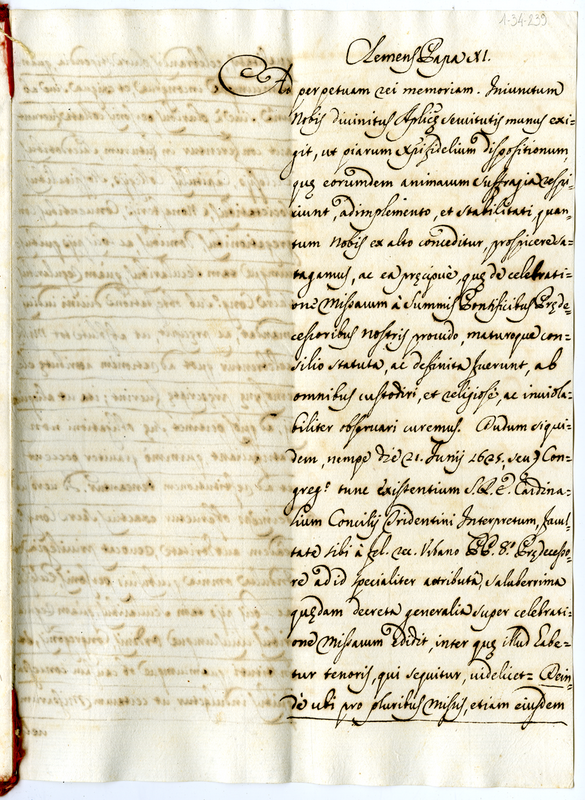 1-34-239
Clemens Papa XI.
Ad perpetuam rei memoriam. Iniunctum
Nobis divinitus Aplicę servitutis munus exi=
git, ut piarum Xpifidelium dispositionum,
quę eorumdem animarum suffragia respi=
ciunt, adimplemento, et stabilitati, quan=
tum Nobis ex alto conceditur, prospicere sa=
tagamus, ac ea pręcipuè, quę de celebrati=
one Missarum à Summis Pontificibus Prędę=
cessoribus nostris provido, maturoque con=
silio statuta, ac definita fuerunt, ab
omnibus custodiri, et religiosè, ac inviola=
biliter observari curemus. Dudum siqui=
dem, nempe die 21. Junij 1625, seu Con=
greg.º tunc existentium S.R.E. Cardina=
lium Concilij Tridentini Interpretum, facul=
tate sibi à fel. rec. Urbano PP. 8.º Prędecesso=
re ad id specialiter attributa, saluberrima
quędam decreta generalia super celebrati=
one Missarum Edidit, inter quę illud habe=
tur tenoris, qui sequitur, videlicet= Dein=
dè ubi pro pluribus Missis, etiam eiusdem